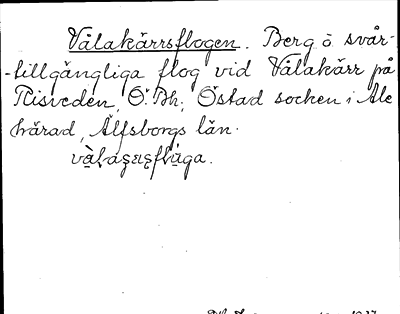 Vålakärrsflogen. Berg o svår-
-tillgängliga flog vid Vålakärr på
Risveden, Ö. Bh, Östad socken i Ale
härad, Älfsborgs län.